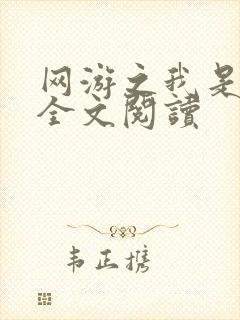 网游之我是
全文閱讀
韦正携